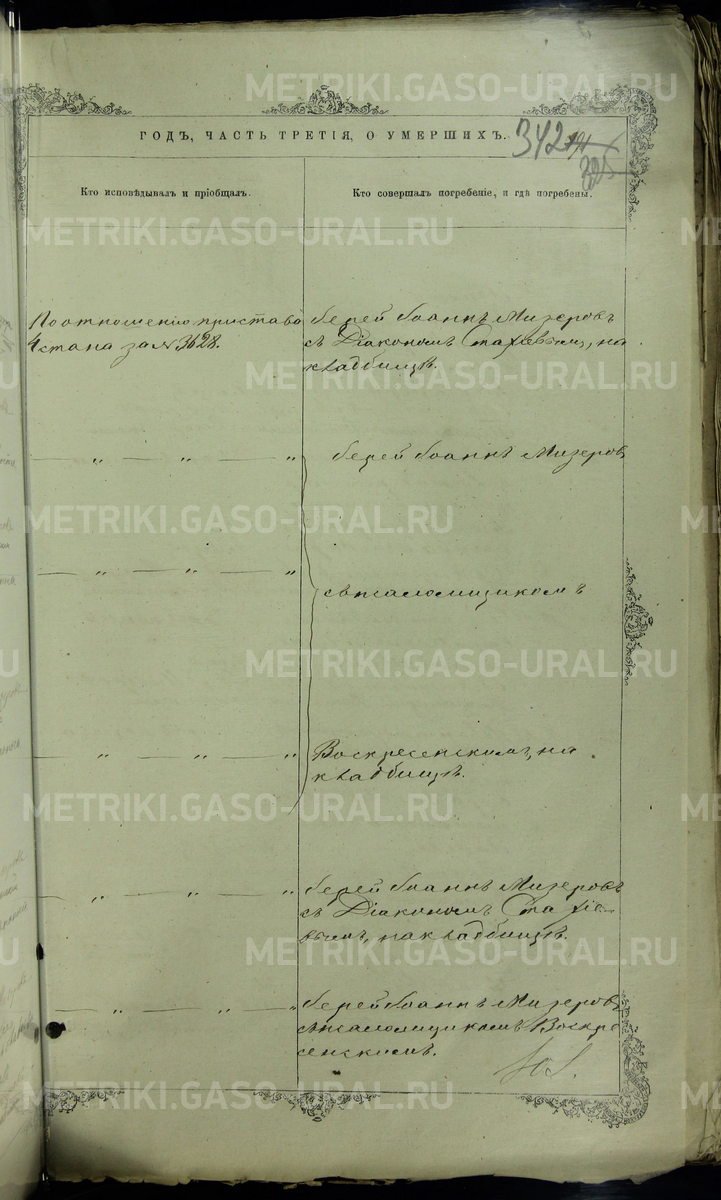 METRIKI.GASO-URAL.RU
ГОДЪ, ЧАСТЬ ТРЕТІЯ, О УМЕРШИХЪ.
342
Кто исповѣдывалъ и пріобщалъ.
Кто совершалъ погребеніе, и гдѣ погребены.
По отношенію пристава
4 стана за № 3628.
Іерей Іоаннъ Мизеровъ
съ Діакономъ Стахіевымъ, на
кладбищѣ.
— „ — „ — „
Іерей Іоаннъ Мизеровъ
— „ — „ — „
съ псаломщикомъ
— „ — „ — „
Воскресенскимъ, на
кладбищѣ.
— „ — „ — „
Іерей Іоаннъ Мизеровъ
съ Діакономъ Стахіе-
вымъ, на кладбищѣ.
— „ — „ — „
Іерей Іоаннъ Мизеровъ
съ псаломщикомъ Воскре-
сенскимъ.